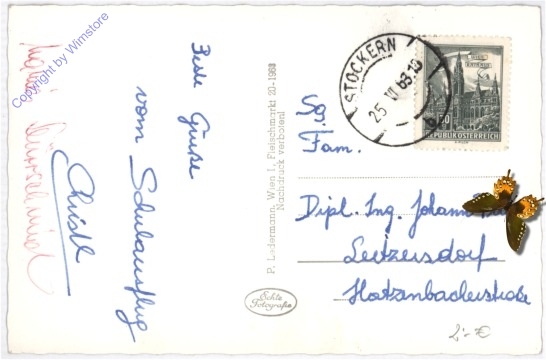 Copyright by Wimstore
Beste Grüße
vom Schulausflug
Christl
P. Ledermann, Wien I, Fleischmarkt 20-1963
Nachdruck verboten!
Echte
Fotografie
STOCKERN
25. VI 63.18
REPUBLIK ÖSTERREICH
Fam.
Dipl. Ing. Johann
Leitzersdorf
Hatzenbacherstraße
2,- €